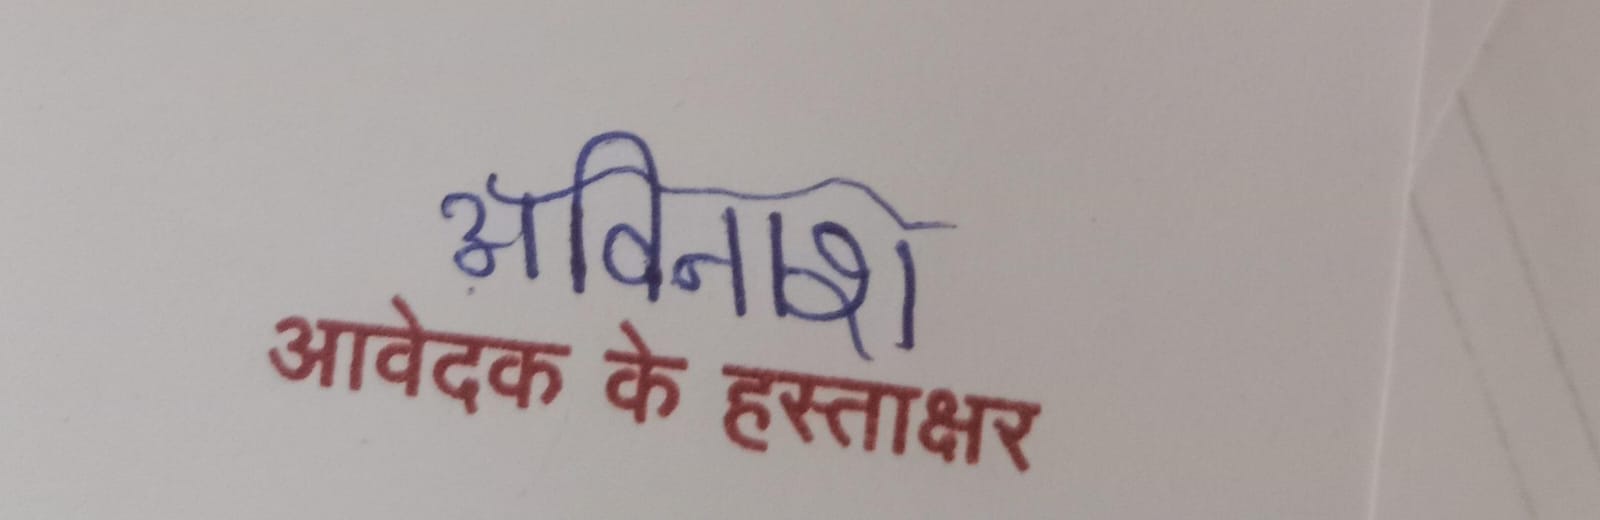 अविनाश
आवेदक के हस्ताक्षर